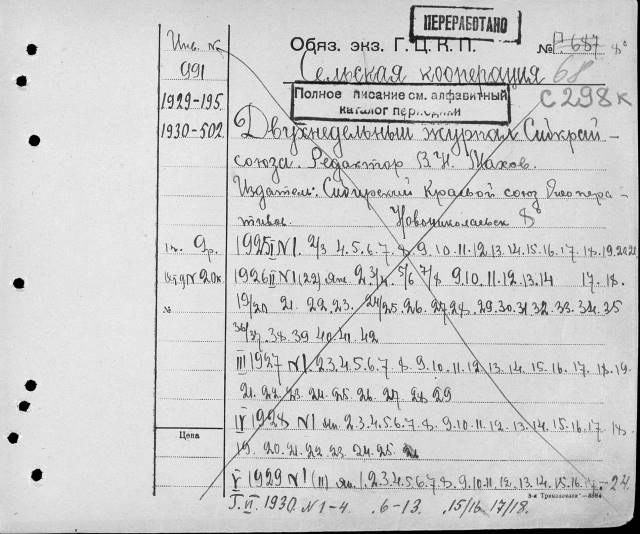 ПЕРЕРАБОТАНО
Инв. №
991
1929-195.
1930-502.
Обяз. экз. Г.Ц.К.П. № П-687 8°
Сельская кооперация 68
Полное писание см. алфавитный
каталог периодики
С298к
Двухнедельный журнал Сибкрай-
союза. Редактор В.Н. Махов.
Издатель: Сибирский Краевой союз Коопера-
тивов. Новониколаевск 8°
1925 I N1. 2/3 4.5.6.7.8.9.10.11.12.13.14.15.16.17.18.19.20.21
1926 II N1(22) ян. 2.3/4. 5/6 7/8 9.10.11.12.13.14 17.18.
19/20 21. 22.23. 24/25.26.27.28.29.30.31.32.33.34.35
36/37.38.39.40.41.42
III 1927 N1.2.3.4.5.6.7.8.9.10.11.12.13.14.15.16.17.18.19.
21.22.23.24.25.26.27.28 29
IV 1928 N1 ян.2.3.4.5.6.7.8.9.10.11.12.13.14.15.16.17.18
19.20.21.22.23.24.25.
V 1929 N1 (11) ян.1.2.3.4.5.6.7.8.9.10.11.12.13.14.15.16.-24.
VI. 1930. N1-4. 6-13. 15/16. 17/18.
№
Цена